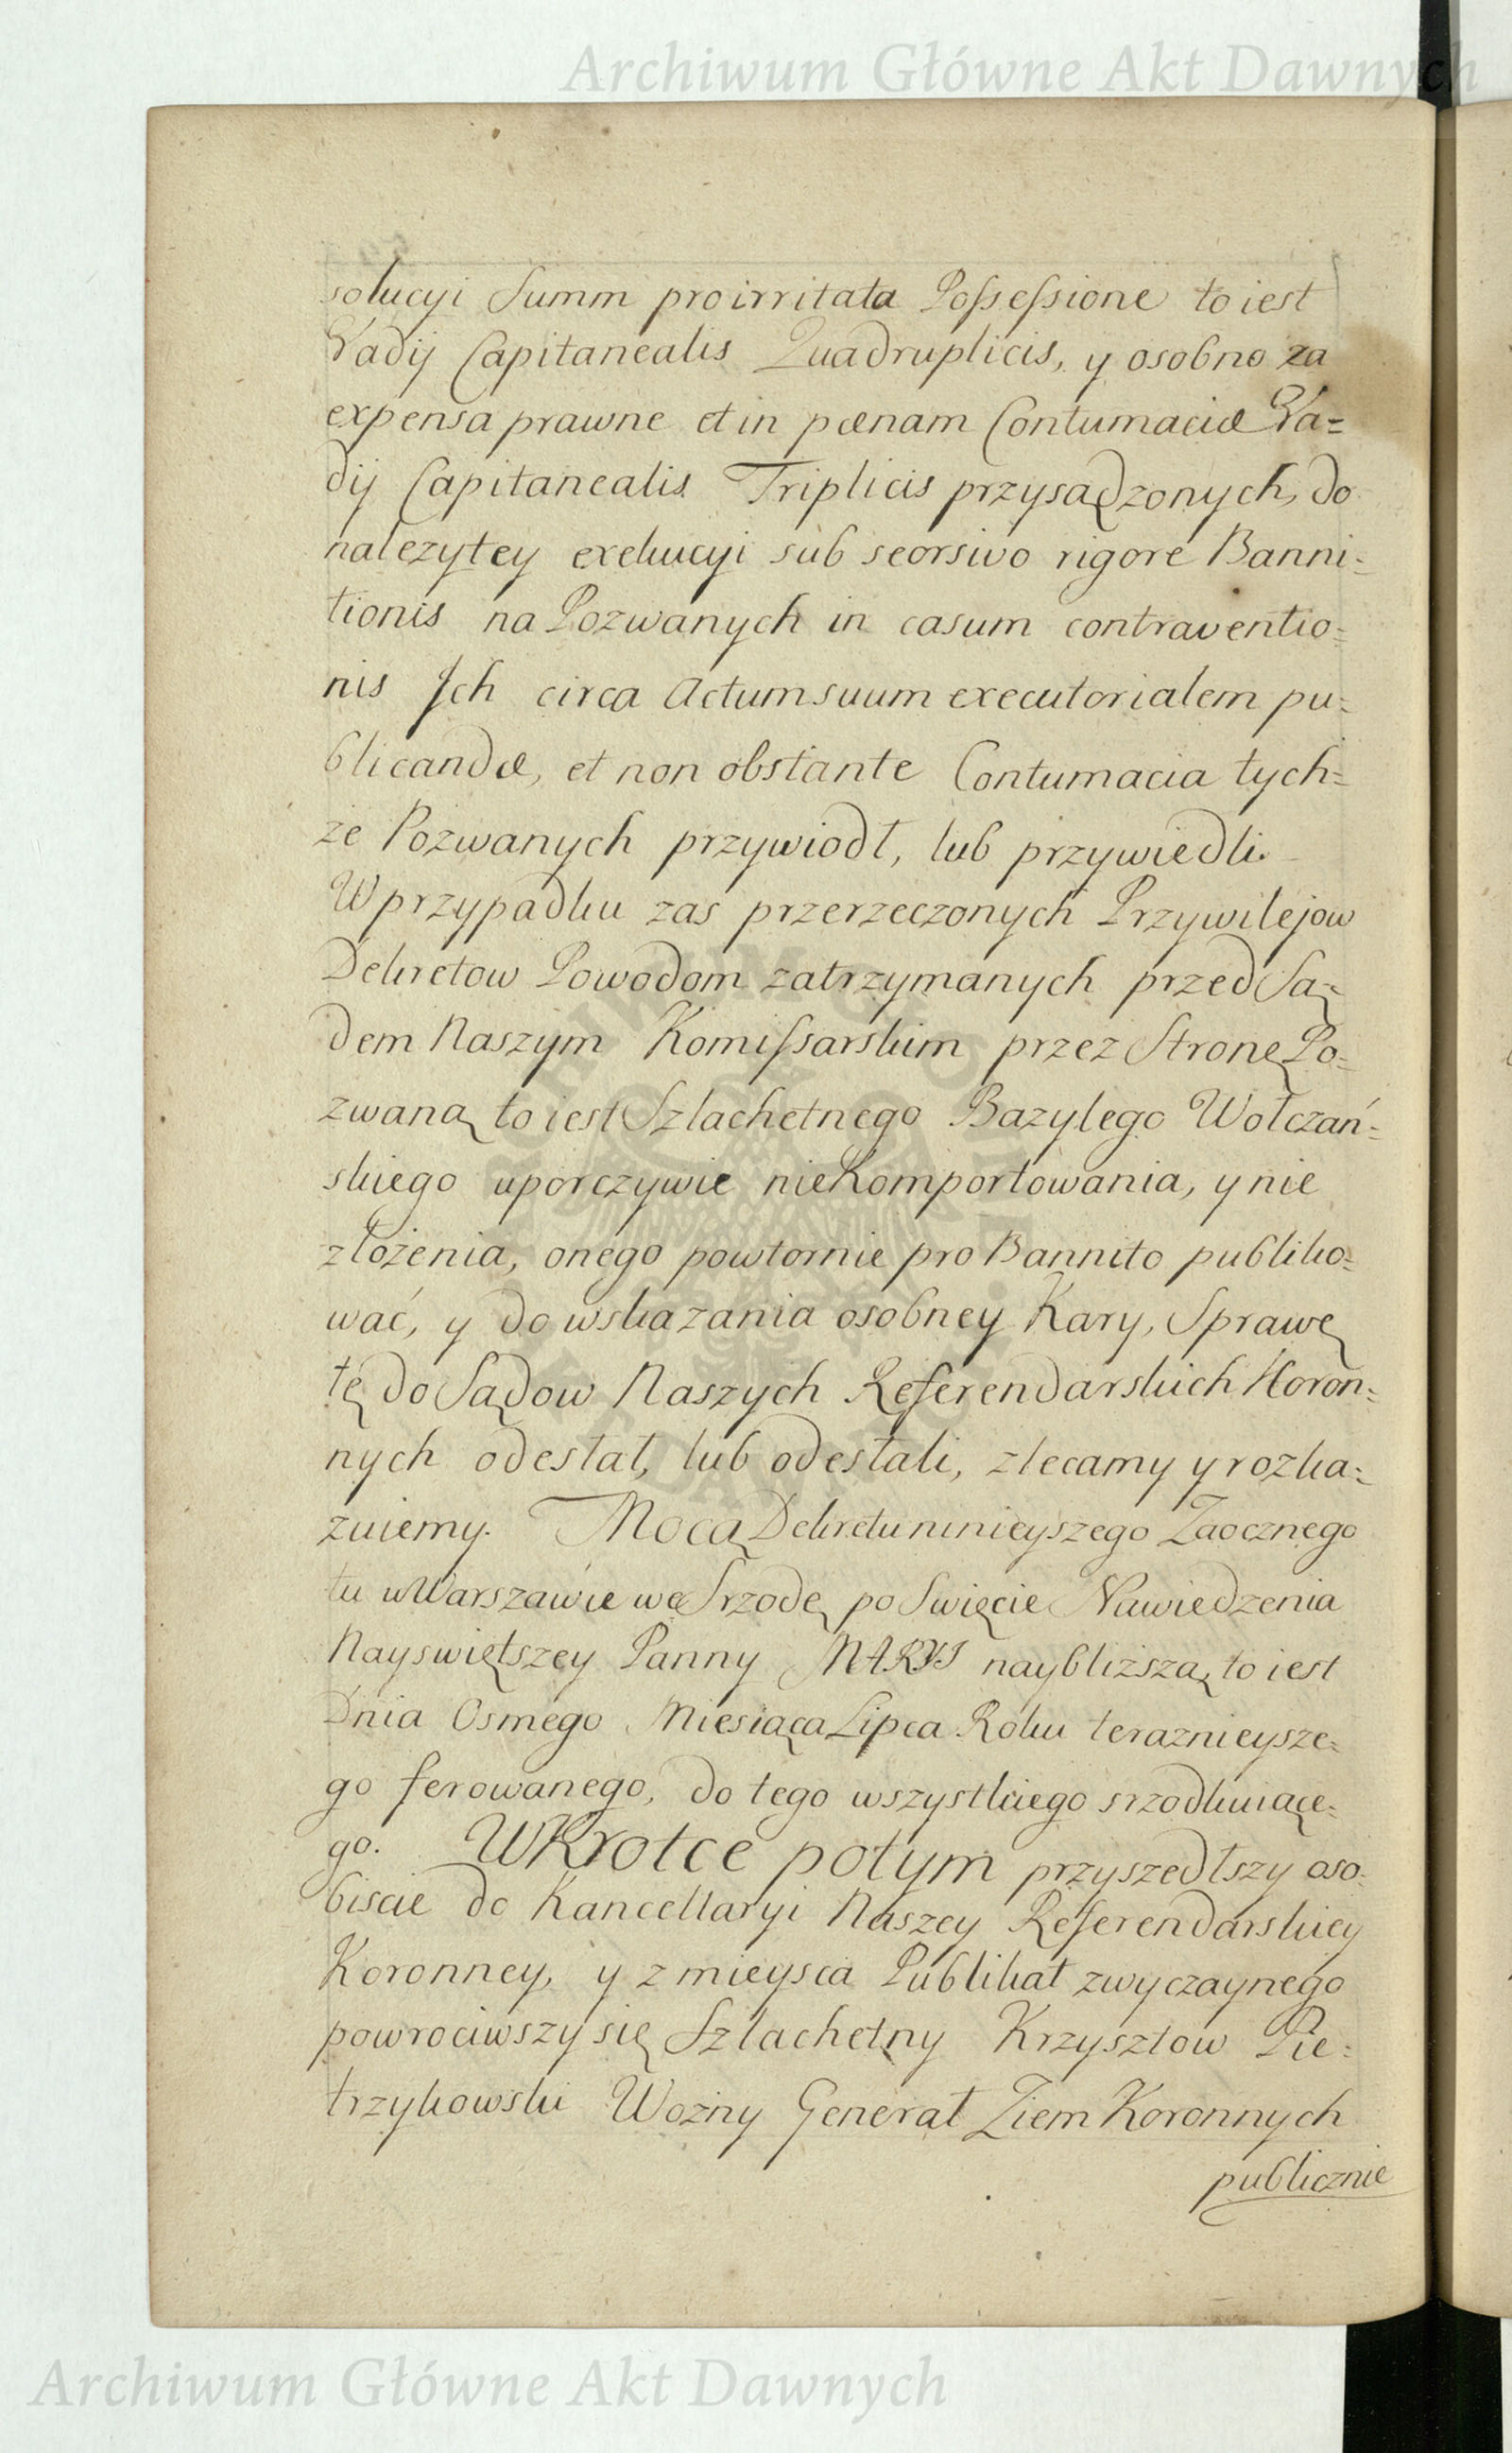 Archiwum Główne Akt Dawnych
solucyi Summ pro irritata Possessione to iest
Vadij Capitanealis Quadruplicis, y osobno za
expensa prawne et in pœnam Contumaciæ Va=
dij Capitanealis Triplicis przysądzonych, do
nalezytey exekucyi sub seorsivo rigore Banni=
tionis na Pozwanych in casum contraventio=
nis Ich circa Actum suum executorialem pu=
blicandæ, et non obstante Contumacia tych=
że Pozwanych przywiodł, lub przywiedli.
W przypadku zas przerzeczonych Przywilejow
Dekretow Powodom zatrzymanych przed Są=
dem Naszym Komissarskim przez Stronę Po=
zwaną to iest Szlachetnego Bazylego Wołczań=
skiego uporczywie nie Komportowania, y nie
złożenia, onego powtornie pro Bannito publiko=
wać, y do wskazania osobney Kary, Sprawę
tę do Sądow Naszych Referendarskich Koron=
nych odesłał, lub odesłali, zlecamy y rozka=
zuiemy. Mocą Dekretu ninieyszego Zaocznego
tu w Warszawie we Srzodę po Swięcie Nawiedzenia
Nayswiętszey Panny MARYI naybliższą to iest
Dnia Osmego Miesiąca Lipca Roku teraznieysze=
go ferowanego, do tego wszystkiego srzodkuiące=
go. W Krotce potym przyszedłszy oso=
biscie do Kancellaryi Naszey Referendarskiey
Koronney, y z mieysca Publikat zwyczaynego
powrociwszy się Szlachetny Krzysztow Pie=
trzykowski Wozny Generał Ziem Koronnych
publicznie
Archiwum Główne Akt Dawnych